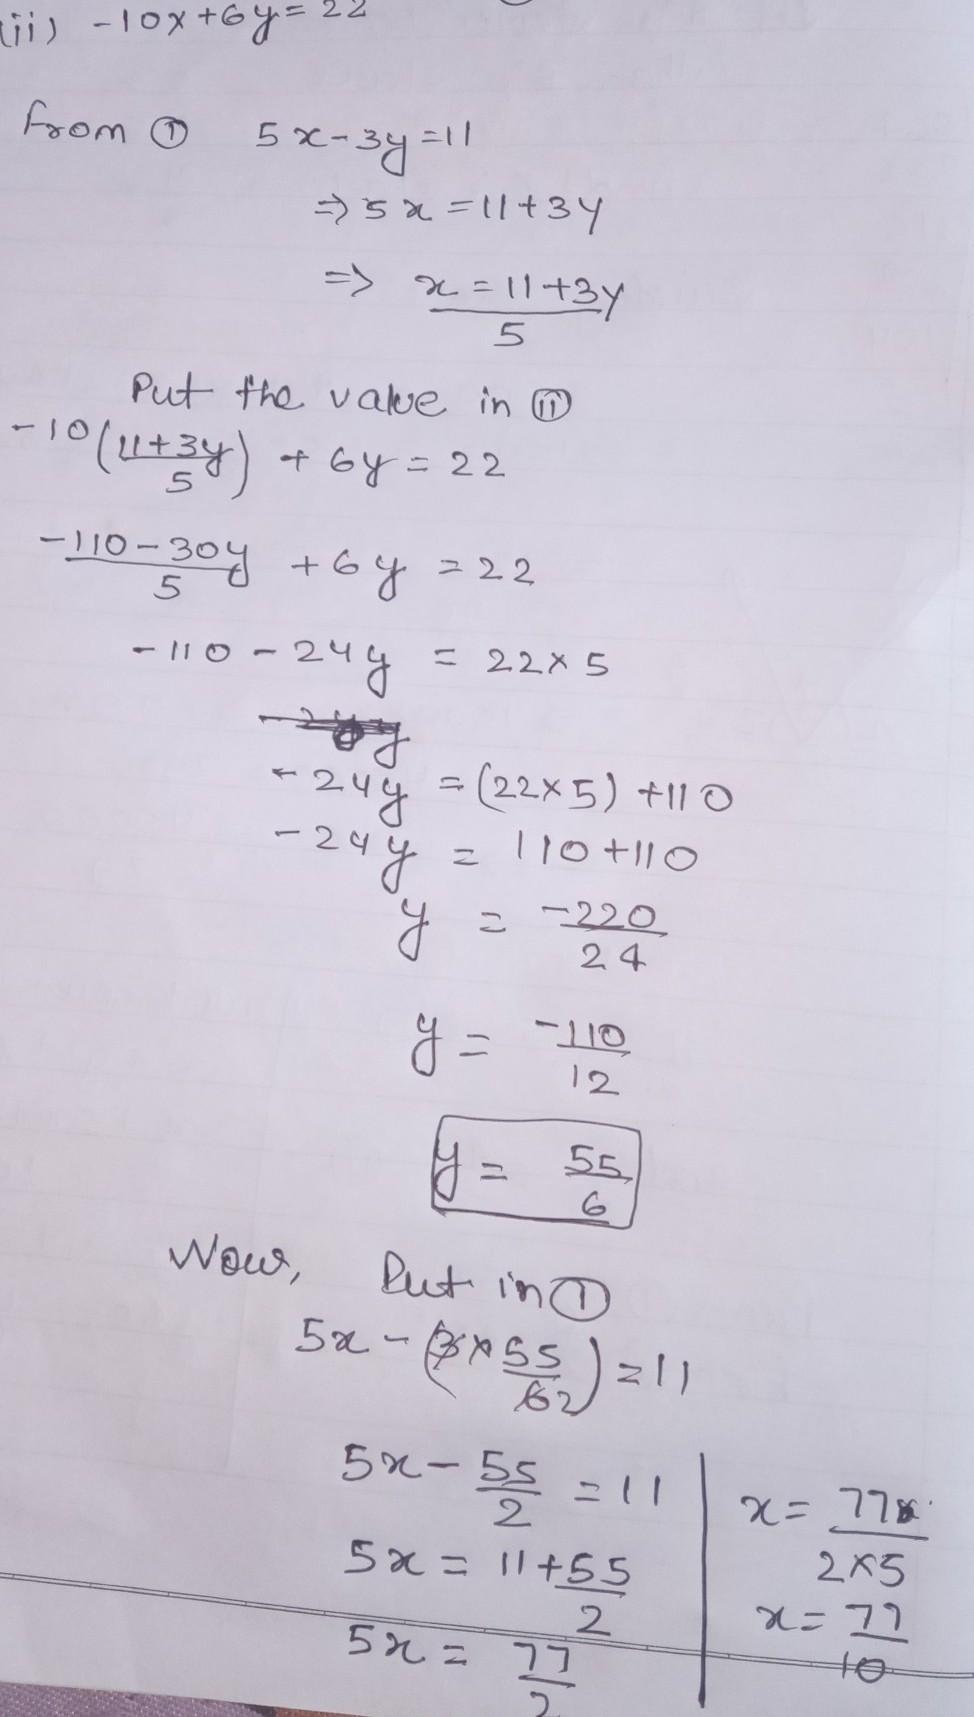 (ii) -10x+6y=22
from ① 5x-3y=11
⇒ 5x=11+3y
⇒ x=11+3y
5
Put the value in ⑪
-10(11+3y/5) + 6y = 22
-110-30y/5 + 6y = 22
-110-24y = 22×5
-24y = (22×5)+110
-24y = 110+110
y = -220/24
y = -110/12
y = 55/6
Now, Put in ①
5x-(3×55/62)=11
5x-55/2=11
5x=11+55/2
5x=77/2
x=77/2×5
x=77/10